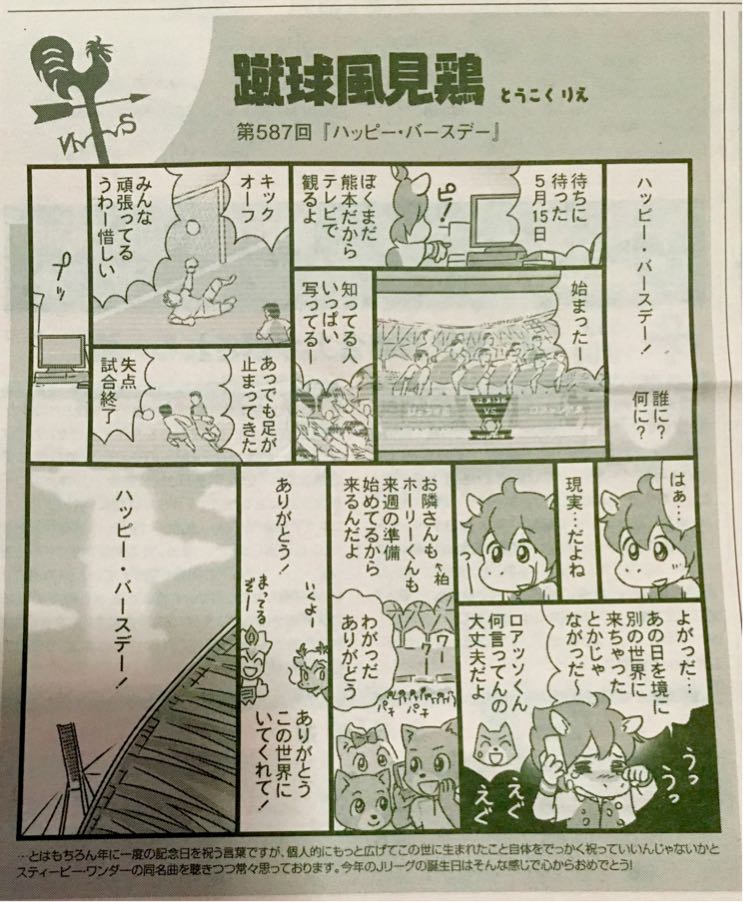 蹴球風見鶏
とうこくりえ
N S
第587回『ハッピー・バースデー』
ハッピー・バースデー!
誰に?
何に?
待ちに
待った
5月15日
ピ!
ぼくまだ
熊本だから
テレビで
観るよ
始まったー
VS
知ってる人
いっぱい
写ってるー
キック
オーフ
みんな
頑張ってる
うわー惜しい
あっでも足が
止まってきた
失点
試合終了
プッ
はぁ…
現実…だよね
よがっだ…
あの日を境に
別の世界に
来ちゃった
とかじゃ
ながっだ〜
うっ
うっ
えぐ
えぐ
ロアッソくん
何言ってんの
大丈夫だよ
お隣さんも
←柏
ホーリーくんも
来週の準備
始めてるから
来るんだよ
ワー
ワー
パチ
パチ
わがっだ
ありがどう
ありがとう!
いくよー
まってる
ぞー
ありがとう
この世界に
いてくれて!
ハッピー・バースデー!
…とはもちろん年に一度の記念日を祝う言葉ですが、個人的にもっと広げてこの世に生まれたこと自体をでっかく祝っていいんじゃないかと
スティービー・ワンダーの同名曲を聴きつつ常々思っております。今年のJリーグの誕生日はそんな感じで心からおめでとう!